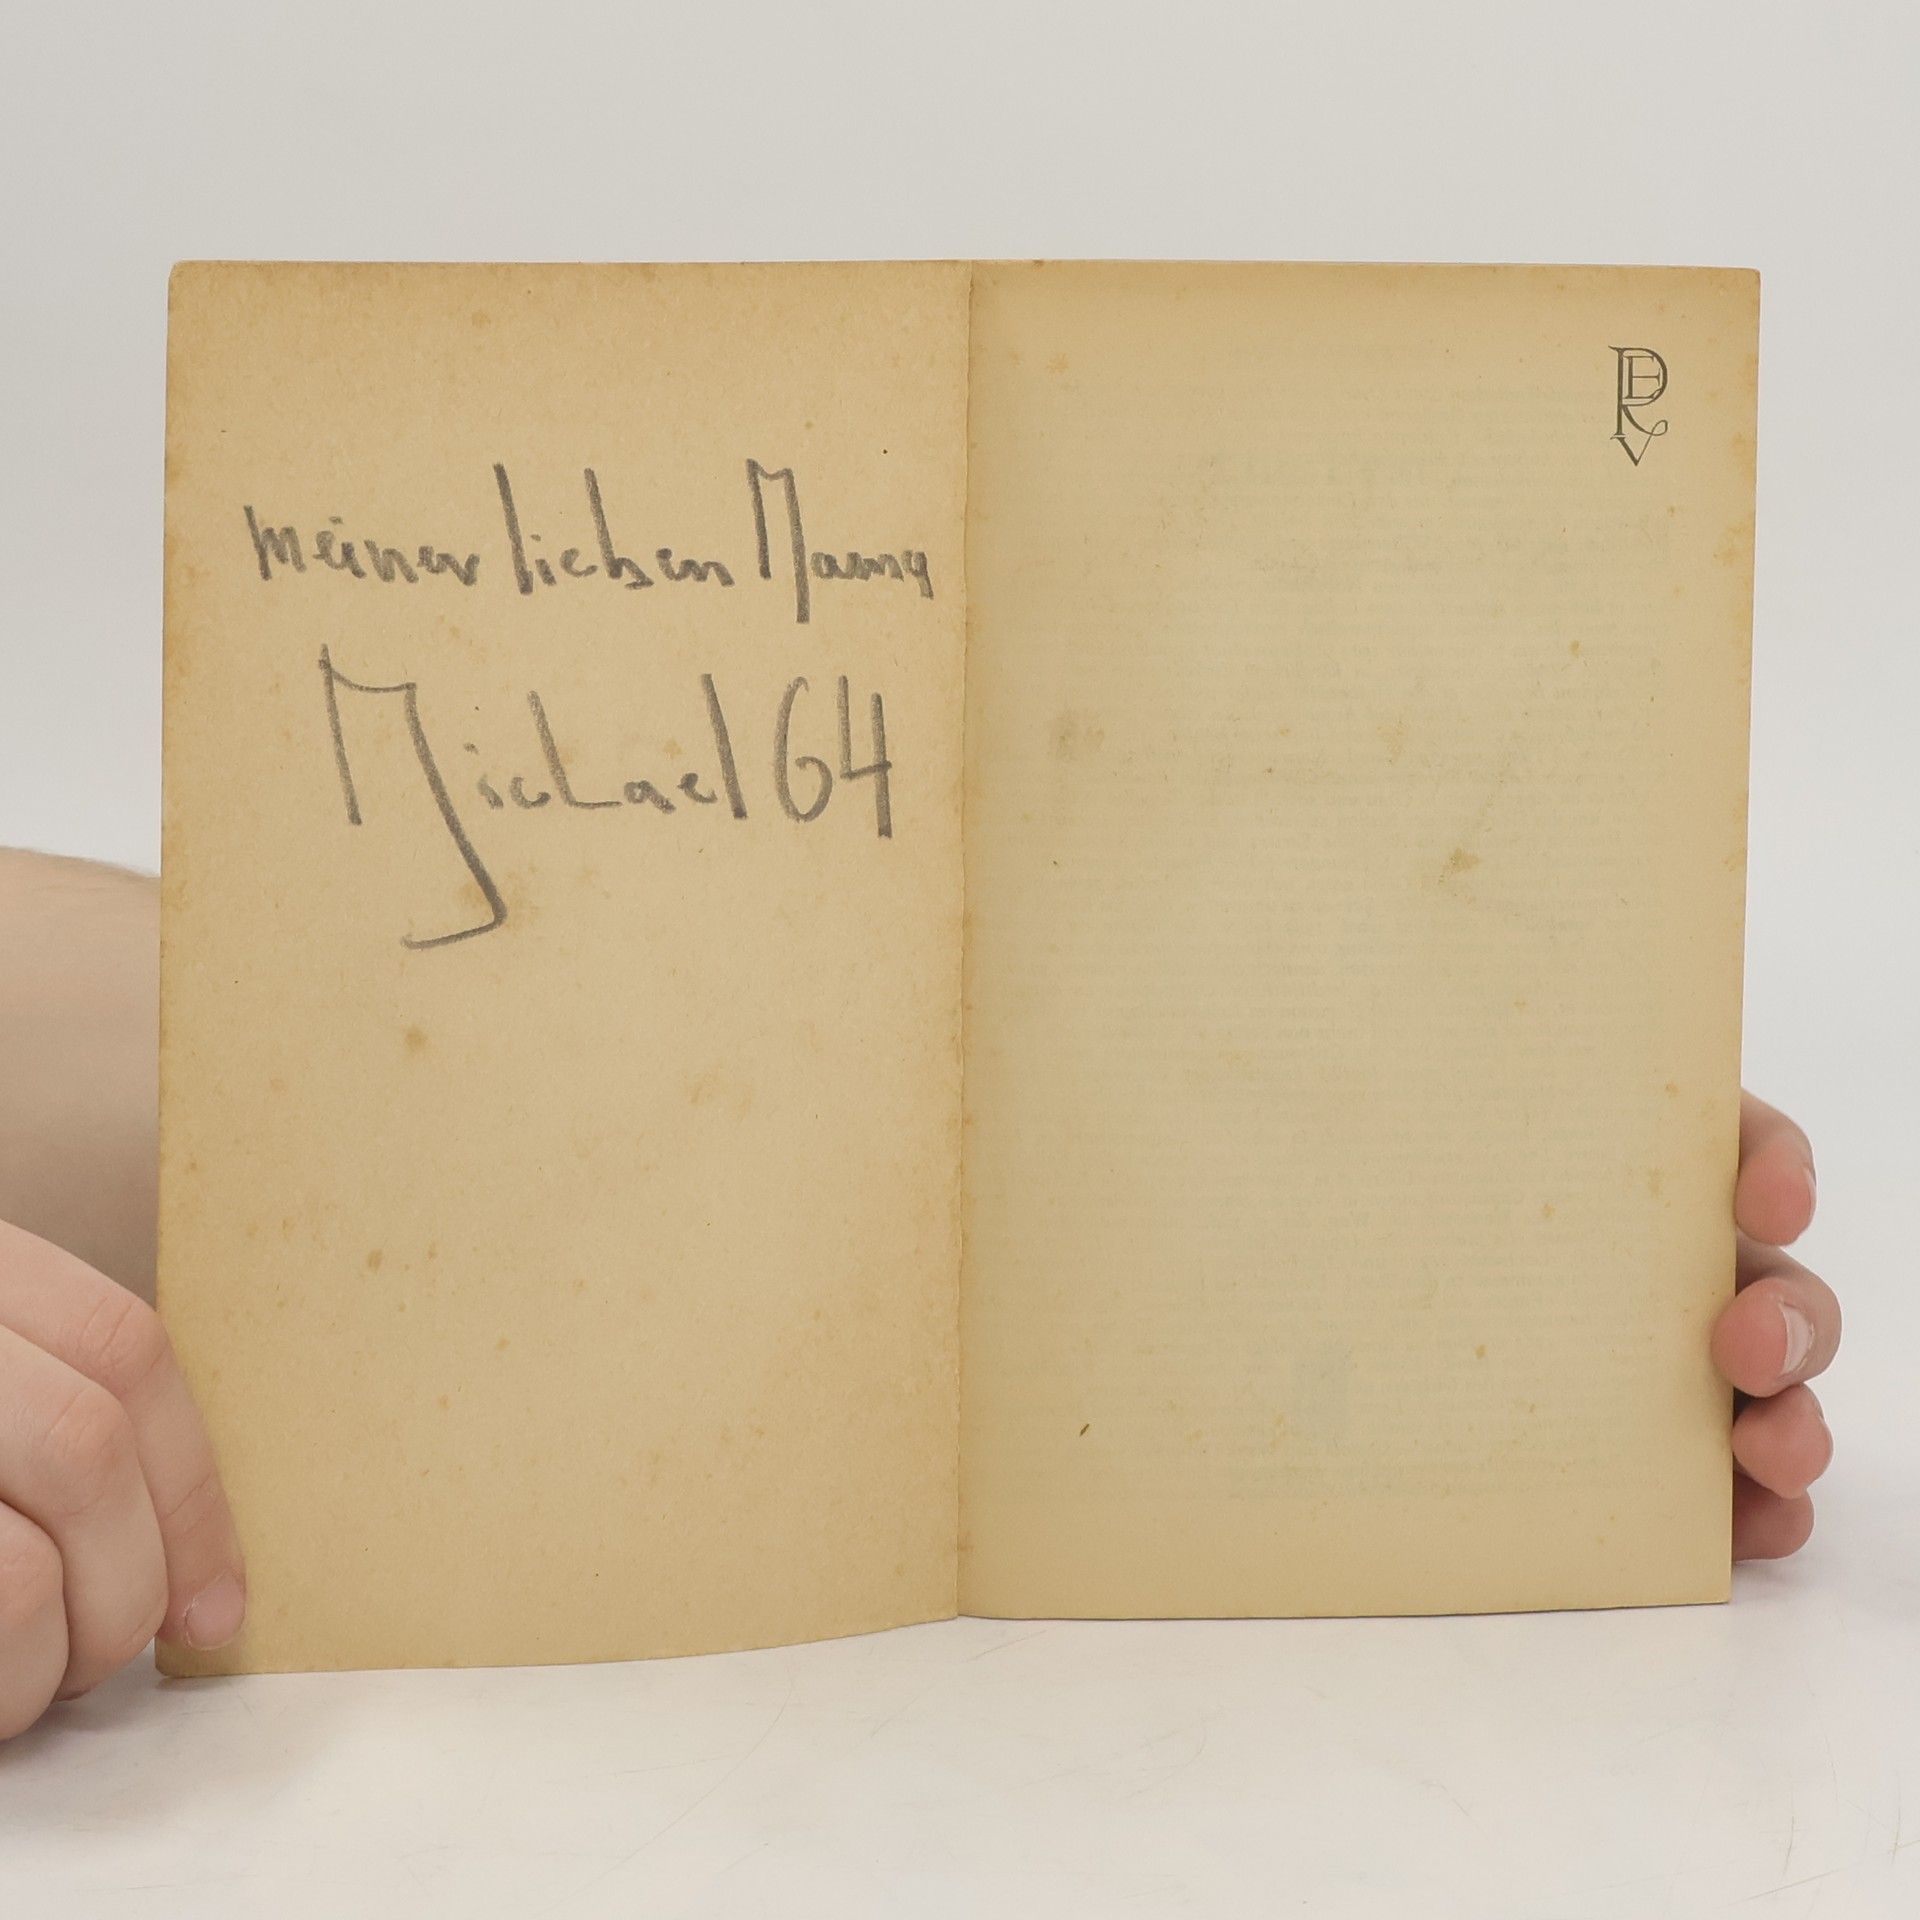 meiner lieben Mama
Michael 64